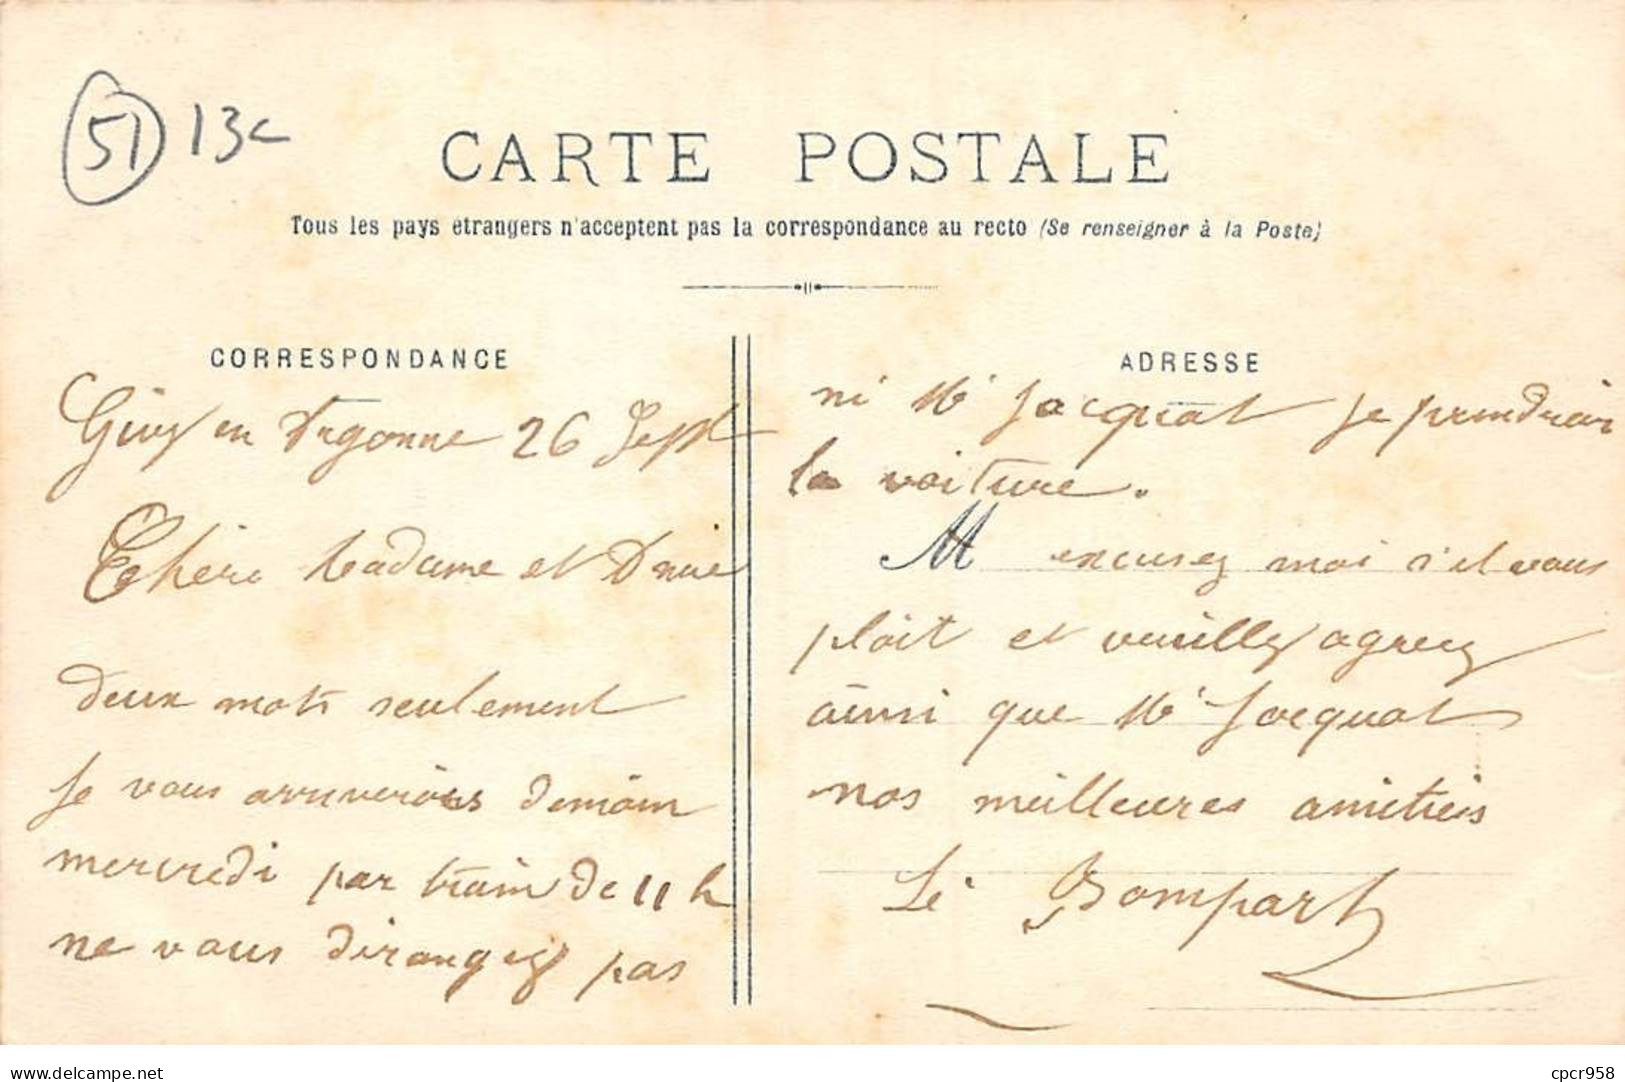 51 13c
CARTE POSTALE
Tous les pays étrangers n'acceptent pas la correspondance au recto (Se renseigner à la Poste)
CORRESPONDANCE
Givry en Argonne 26 Sept
Chère Madame et Amie
deux mots seulement
je vous arriverais demain
mercredi par train de 11 h
ne vous dérangez pas
ADRESSE
ni Mr Jacquat je prendrai
la voiture.
M excusez moi s'il vous
plait et veuillez agreez
ainsi que Mr Jacquat
nos meilleures amitiés
Bompart
delcampe.net
cpcr958